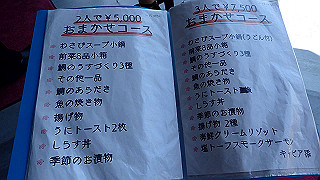 2人で¥5,000
おまかせコース
わさびスープ小鍋
前菜8品小格
鯛のうすづくり3種
その他一品
鯛のあらだき
魚の焼き物
揚げ物
うにトースト2枚
しらす丼
季節のお漬物
3人で¥7,500
おまかせコース
わさびスープ小鍋(うどん付)
前菜8品
鯛のうすづくり3種
その他一品
鯛のあらだき
魚の焼き物
うにトースト
しらす丼
季節のお漬物
揚げ物 2種
海鮮クリームリゾット
塩トーフスモークサーモン
キャビア添